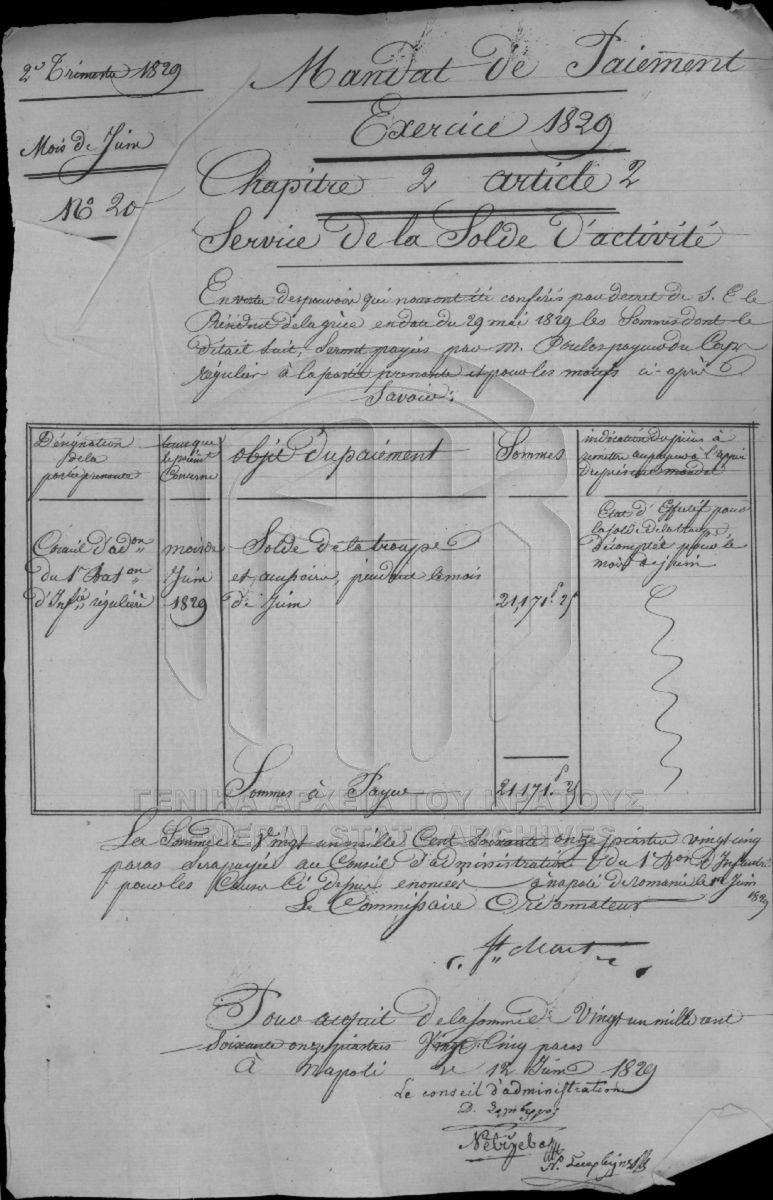 2e Trimestre 1829
Mois de Juin
No 20
Mandat de Paiement
Exercice 1829
Chapitre 2 article 2
Service de la Solde d'activité
En vertu des pouvoir qui nous ont été conférés par decret de S. E le
Président de la grèce en date du 29 mai 1829 les Sommes dont le
détail suit, seront payées par m. payeur du Corps
régulier à la partie prenante et pour les motifs ci-après
Savoir:
Désignation
de la
partie prenante
Conseil d'adon
du 1r Baton
d'Infie régulière
Concerne
mois de
Juin
1829
objet du paiement
Solde de la troupe
pendant le mois
de Juin
Sommes à Payer
Sommes
21,171 p. 25
21,171 p. 25
indication des pièces à
remettre au payeur à l'appui
du présent mandat
Etat d'Effectif pour
la solde de la troupe
décomptée pour le
mois de juin
ΓΕΝΙΚΑ ΑΡΧΕΙΑ ΤΟΥ ΚΡΑΤΟΥΣ
GENERAL STATE ARCHIVES
La Somme de Vingt un mille Cent Soixante onze piastres vingt cinq
paras sera payée au Conseil d'administration du 1r Bon d'Infanterie
pour les Causes Ci dessus enoncées à napoli de romanie le Juin
1829
Le Commissaire Ordonnateur
Pour acquit de la somme de Vingt un mille cent
Soixante onze piastres Vingt Cinq paras
À napoli le 12 Juin 1829
Le conseil d'administration